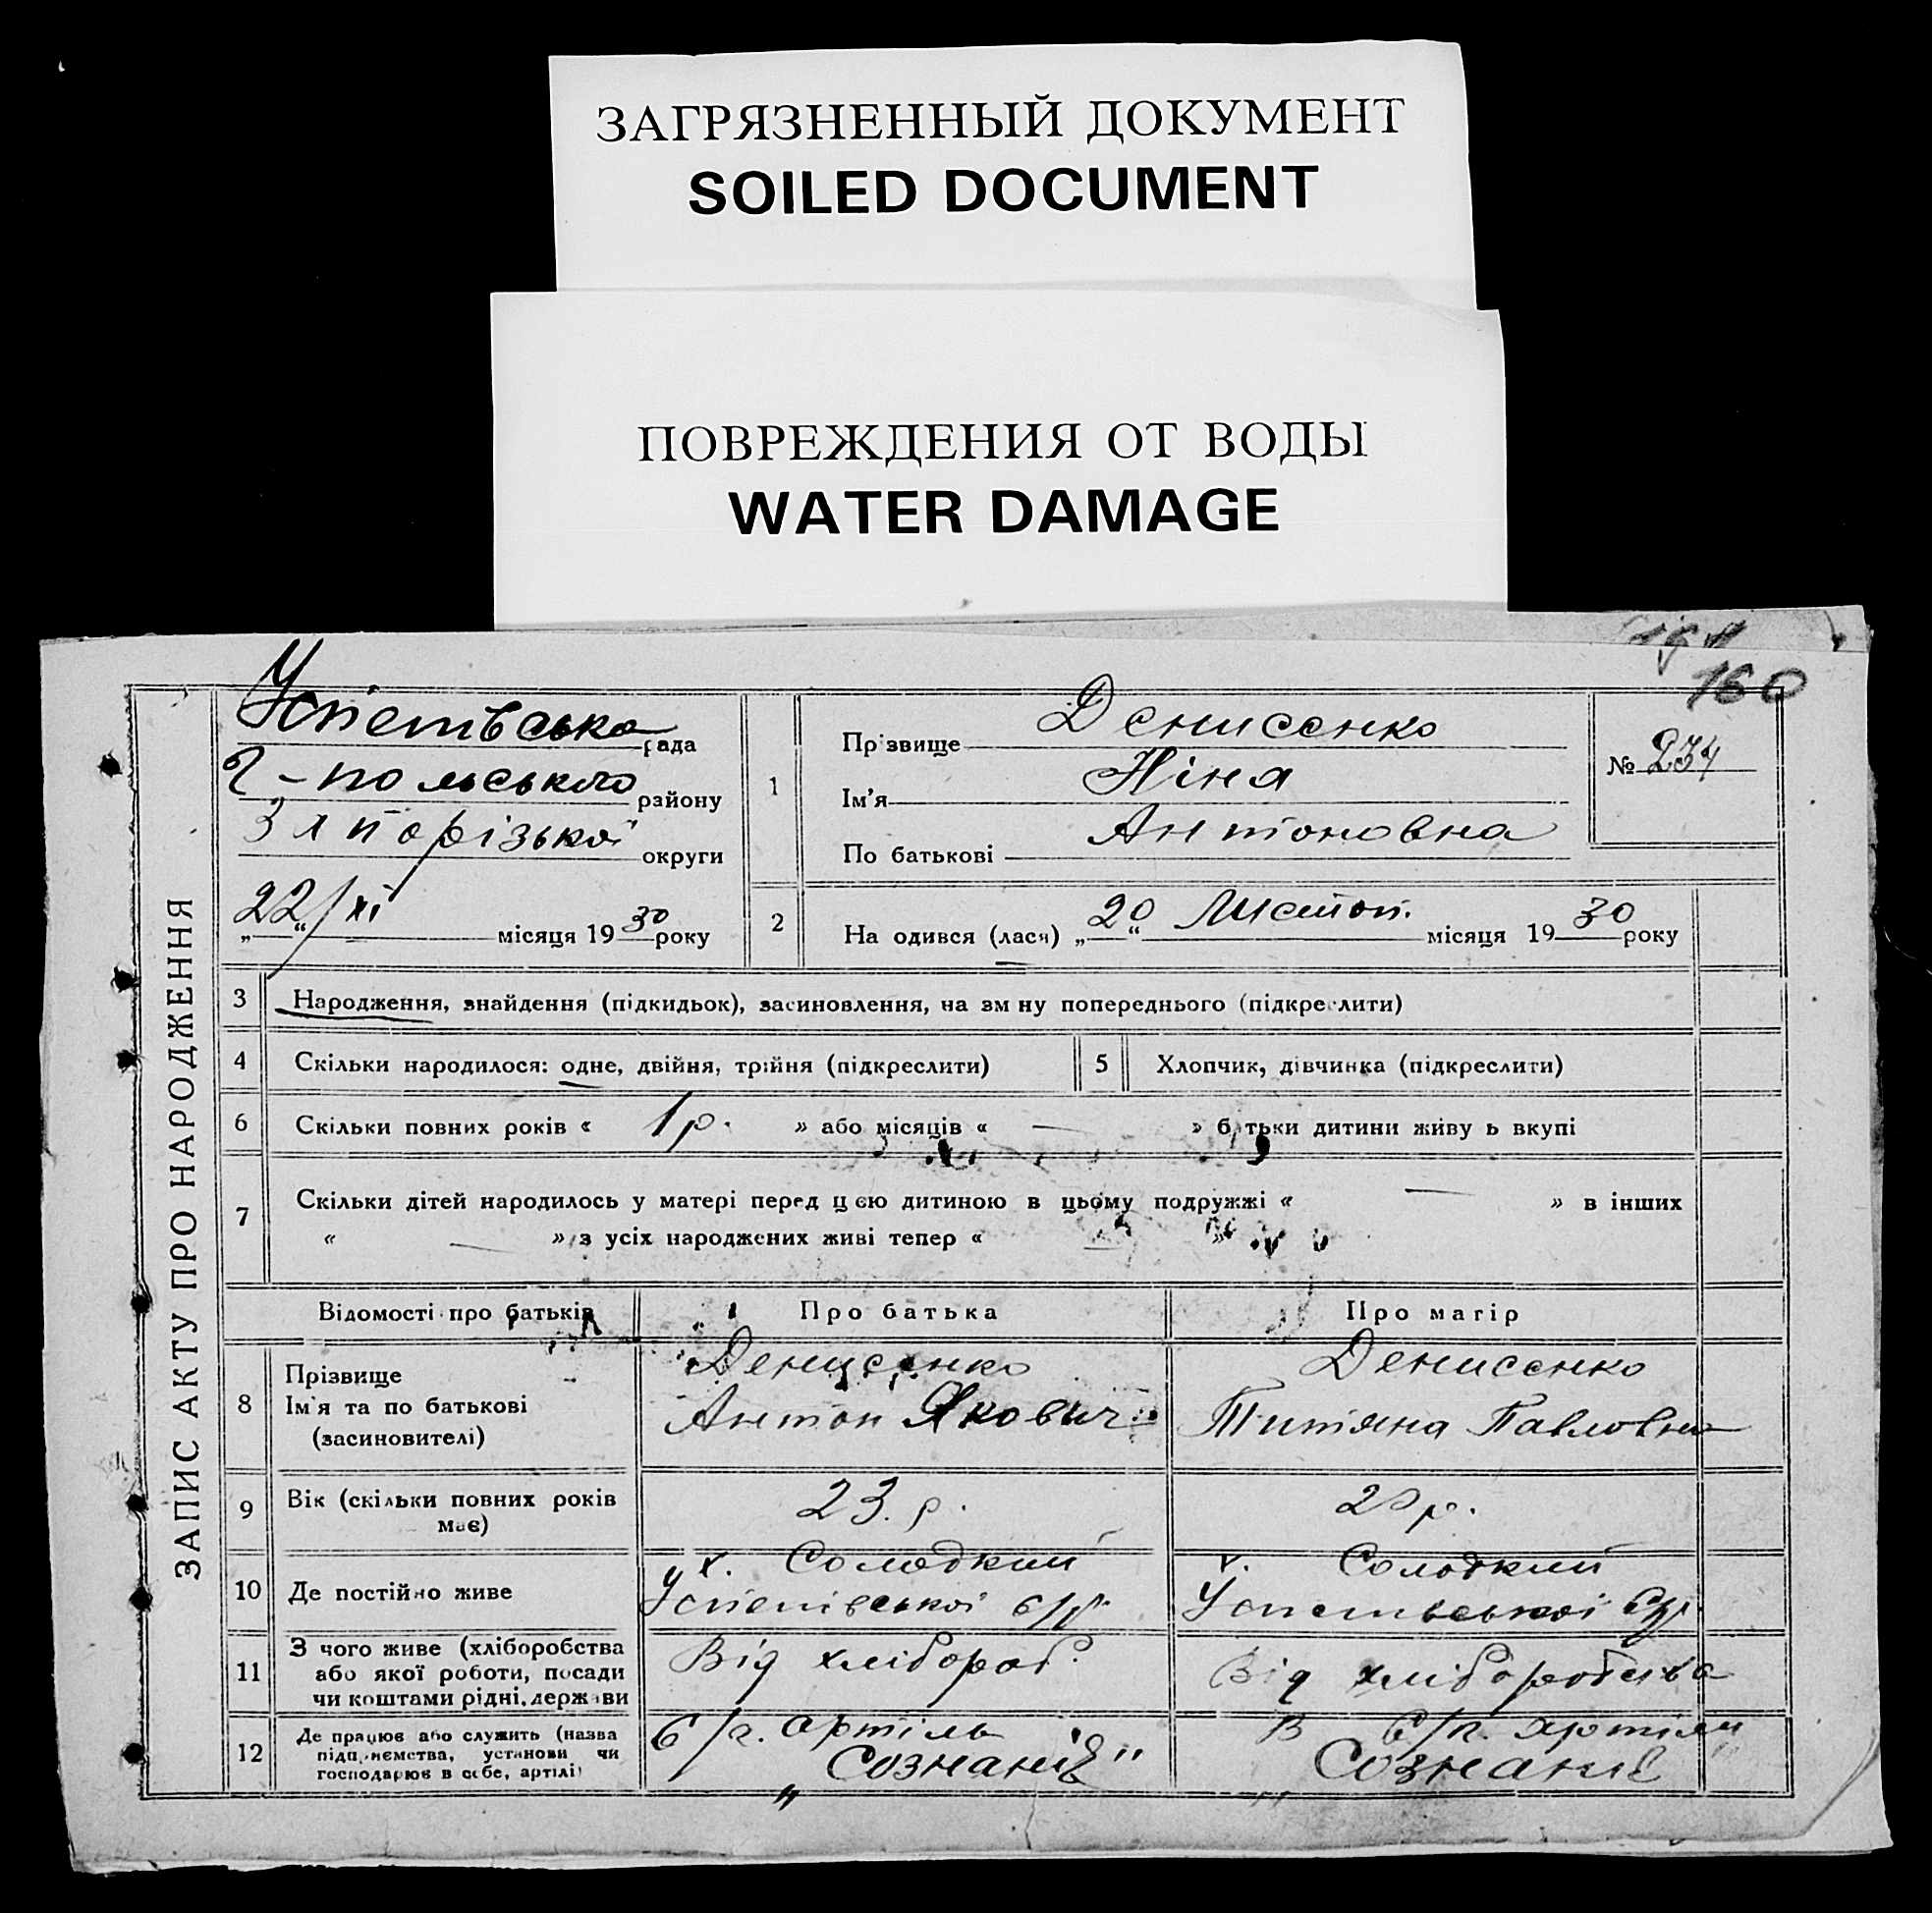 ЗАГРЯЗНЕННЫЙ ДОКУМЕНТ
SOILED DOCUMENT
ПОВРЕЖДЕНИЯ ОТ ВОДЫ
WATER DAMAGE
160
ЗАПИС АКТУ ПРО НАРОДЖЕННЯ
Успенівська рада
Г-польського району
Запорізької округи
22/XI місяця 1930 року
1
Прізвище Денисенко
Ім'я Ніна
По батькові Антоновна
№ 234
2
На одився (лася) „20“ Листоп. місяця 1930 року
3 Народження, знайдення (підкидьок), засиновлення, на зм ну попереднього (підкреслити)
4 Скільки народилося: одне, двійня, трійня (підкреслити)
5 Хлопчик, дівчинка (підкреслити)
6 Скільки повних років « 1 р. » або місяців « — » б тьки дитини живу ь вкупі
7 Скільки дітей народилось у матері перед цєю дитиною в цьому подружжі « — » в інших
« — » з усіх народжених живі тепер « — »
Відомості про батьків
Про батька
Про матір
8
Прізвище
Ім'я та по батькові
(засиновителі)
Денисенко
Антон Якович
Денисенко
Титяна Павловна
9
Вік (скільки повних років
має)
23. р.
20 р.
10 Де постійно живе
х. Солодкий
Успенівської с/р.
х. Солодкий
Успенівської с/р.
11
З чого живе (хліборобства
або якої роботи, посади
чи коштами рідні, держави
Від хлібороб.
Від хліборобства
12
Де працює або служить (назва
підприємства, установи чи
господарює в себе, артілі)
С/г. артіль
„Сознаніє"
В с/г. артіли
„Сознаніє